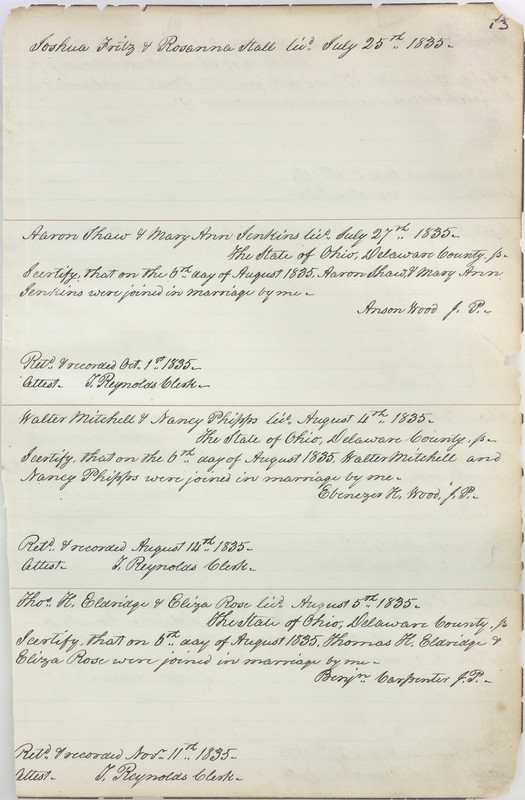 13
Joshua Fritz & Rosanna Stall licd. July 25th 1835.
Aaron Shaw & Mary Ann Jenkins licd. July 27th 1835.
The State of Ohio, Delaware County, ss.
I certify, that on the 6th day of August 1835. Aaron Shaw & Mary Ann
Jenkins were joined in marriage by me.
Anson Wood J. P.
Retd. & recorded Oct. 1st 1835.
Attest. T. Reynolds Clerk.
Walter Mitchell & Nancy Phipps licd. August 4th 1835.
The State of Ohio, Delaware County, ss.
I certify, that on the 6th day of August 1835, Walter Mitchell and
Nancy Phipps were joined in marriage by me.
Ebenezer H. Wood, J. P.
Retd. & recorded August 14th 1835.
Attest. T. Reynolds Clerk.
Thos. H. Eldridge & Eliza Rose licd. August 5th 1835.
The State of Ohio, Delaware County, ss
I certify, that on 6th day of August 1835, Thomas H. Eldridge &
Eliza Rose were joined in marriage by me.
Benjn. Carpenter J. P.
Retd. & recorded Novr. 11th 1835.
Attest. T. Reynolds Clerk.